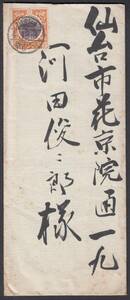 仙台市花京院通一九
河田俊二郎様